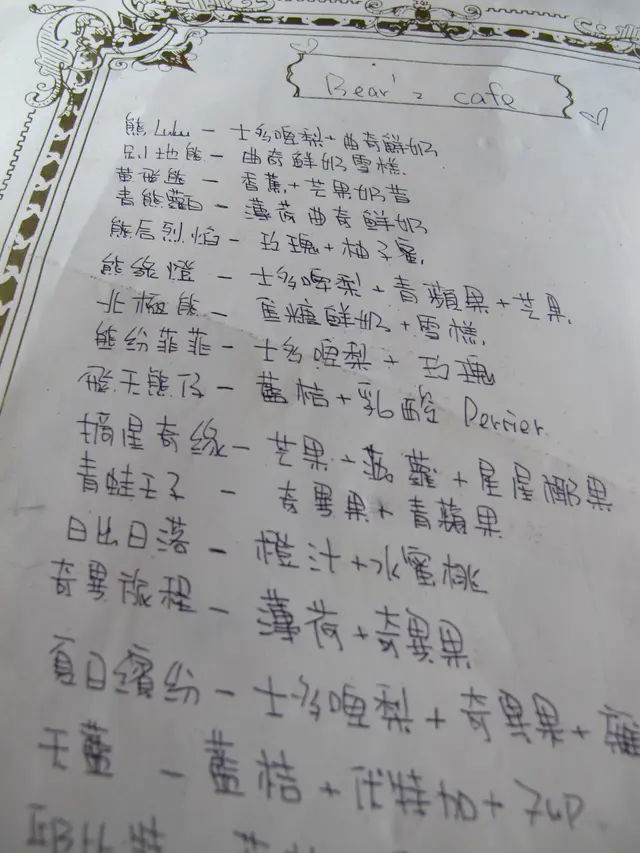 Bear's cafe
熊Lulu － 士多啤梨+曲奇鮮奶
別地熊 － 曲奇鮮奶雪糕.
黃飛熊 － 香蕉+芒果奶昔
青熊顏 － 薄荷曲奇鮮奶
熊后烈焰 － 玫瑰+柚子蜜
熊綠燈 － 士多啤梨+青蘋果+芒果
北極熊 － 焦糖鮮奶+雪糕.
熊紛菲菲 － 士多啤梨+玫瑰
飛天熊仔 － 藍桔+乳酸 Perrier.
摘星奇緣 － 芒果+菠蘿+星星椰果
青蛙王子 － 奇異果+青蘋果
日出日落 － 橙汁+水蜜桃
奇異旅程 － 薄荷+奇異果
夏日繽紛 － 士多啤梨+奇異果+
天藍 － 藍桔+伏特加+7up
比特